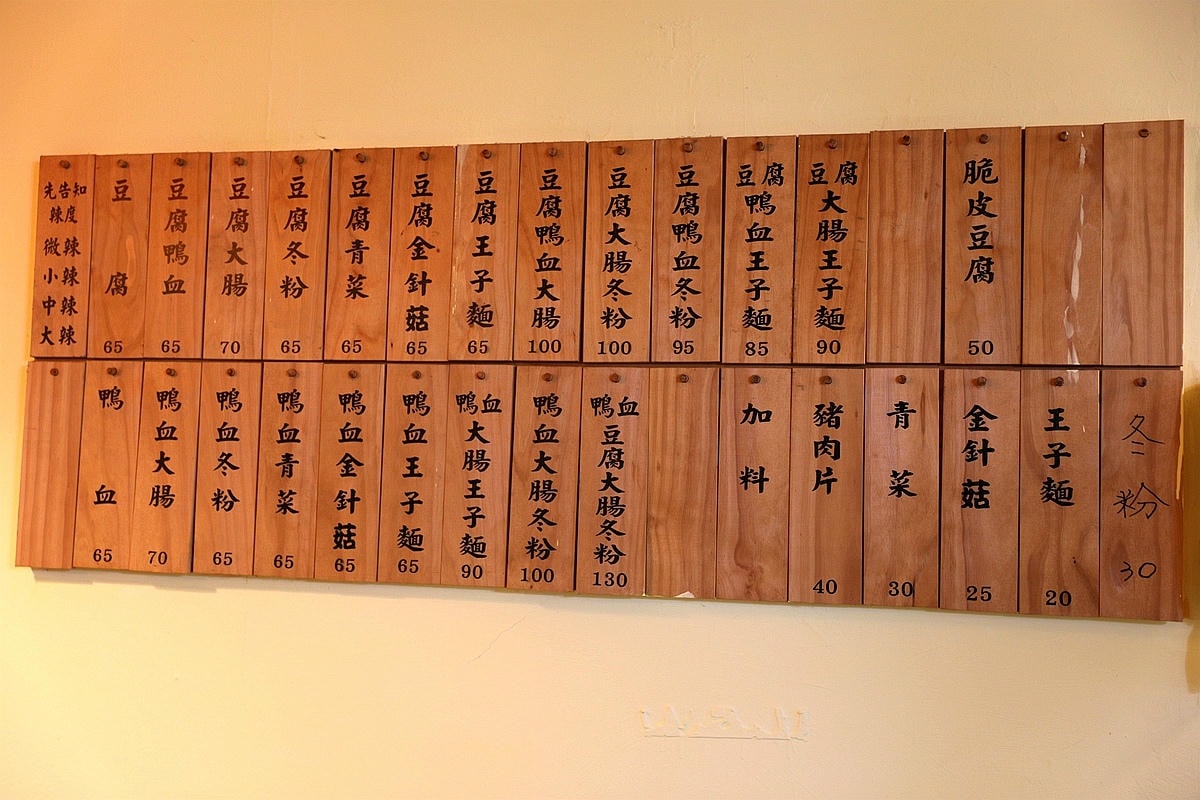 先告知
辣度
微辣
小辣
中辣
大辣
豆腐
65
豆腐鴨血
65
豆腐大腸
70
豆腐冬粉
65
豆腐青菜
65
豆腐金針菇
65
豆腐王子麵
65
豆腐鴨血大腸
100
豆腐大腸冬粉
100
豆腐鴨血冬粉
95
豆腐鴨血王子麵
85
豆腐大腸王子麵
90
脆皮豆腐
50
鴨血
65
鴨血大腸
70
鴨血冬粉
65
鴨血青菜
65
鴨血金針菇
65
鴨血王子麵
65
鴨血大腸王子麵
90
鴨血大腸冬粉
100
鴨血豆腐大腸冬粉
130
加料
豬肉片
40
青菜
30
金針菇
25
王子麵
20
冬粉
30